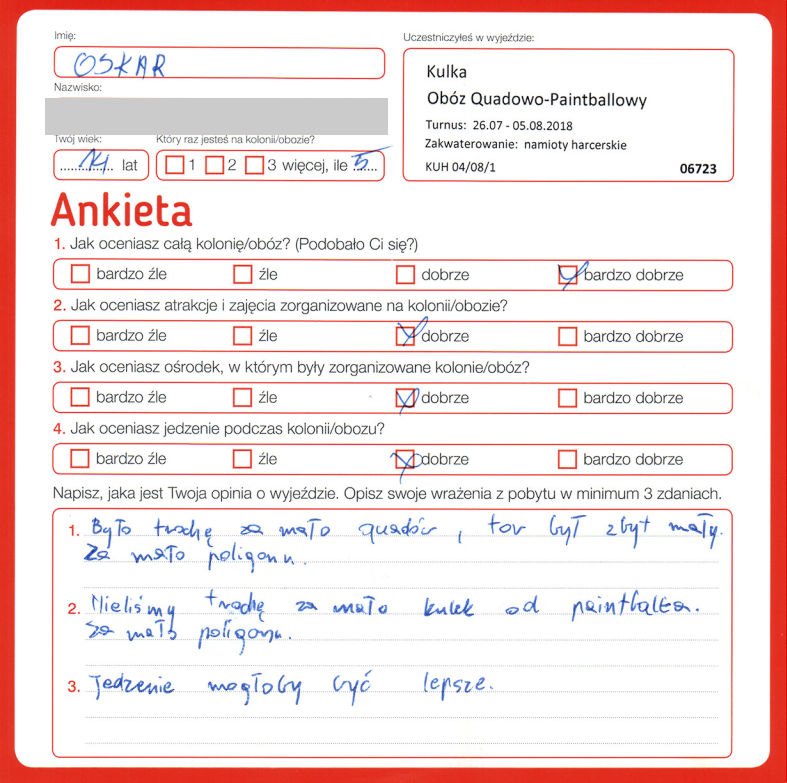 Imię:
OSKAR
Nazwisko:
Twój wiek:
14 lat
Który raz jesteś na kolonii/obozie?
1 2 3 więcej, ile 5
Uczestniczyłeś w wyjeździe:
Kulka
Obóz Quadowo-Paintballowy
Turnus: 26.07 - 05.08.2018
Zakwaterowanie: namioty harcerskie
KUH 04/08/1 06723
Ankieta
1. Jak oceniasz całą kolonię/obóz? (Podobało Ci się?)
bardzo źle źle dobrze bardzo dobrze
2. Jak oceniasz atrakcje i zajęcia zorganizowane na kolonii/obozie?
bardzo źle źle dobrze bardzo dobrze
3. Jak oceniasz ośrodek, w którym były zorganizowane kolonie/obóz?
bardzo źle źle dobrze bardzo dobrze
4. Jak oceniasz jedzenie podczas kolonii/obozu?
bardzo źle źle dobrze bardzo dobrze
Napisz, jaka jest Twoja opinia o wyjeździe. Opisz swoje wrażenia z pobytu w minimum 3 zdaniach.
1. Było trochę za mało quadów, tor był zbyt mały.
Za mało poligonu.
2. Mieliśmy trochę za mało kulek od paintballa.
Za mało poligonu.
3. Jedzenie mogłoby być lepsze.